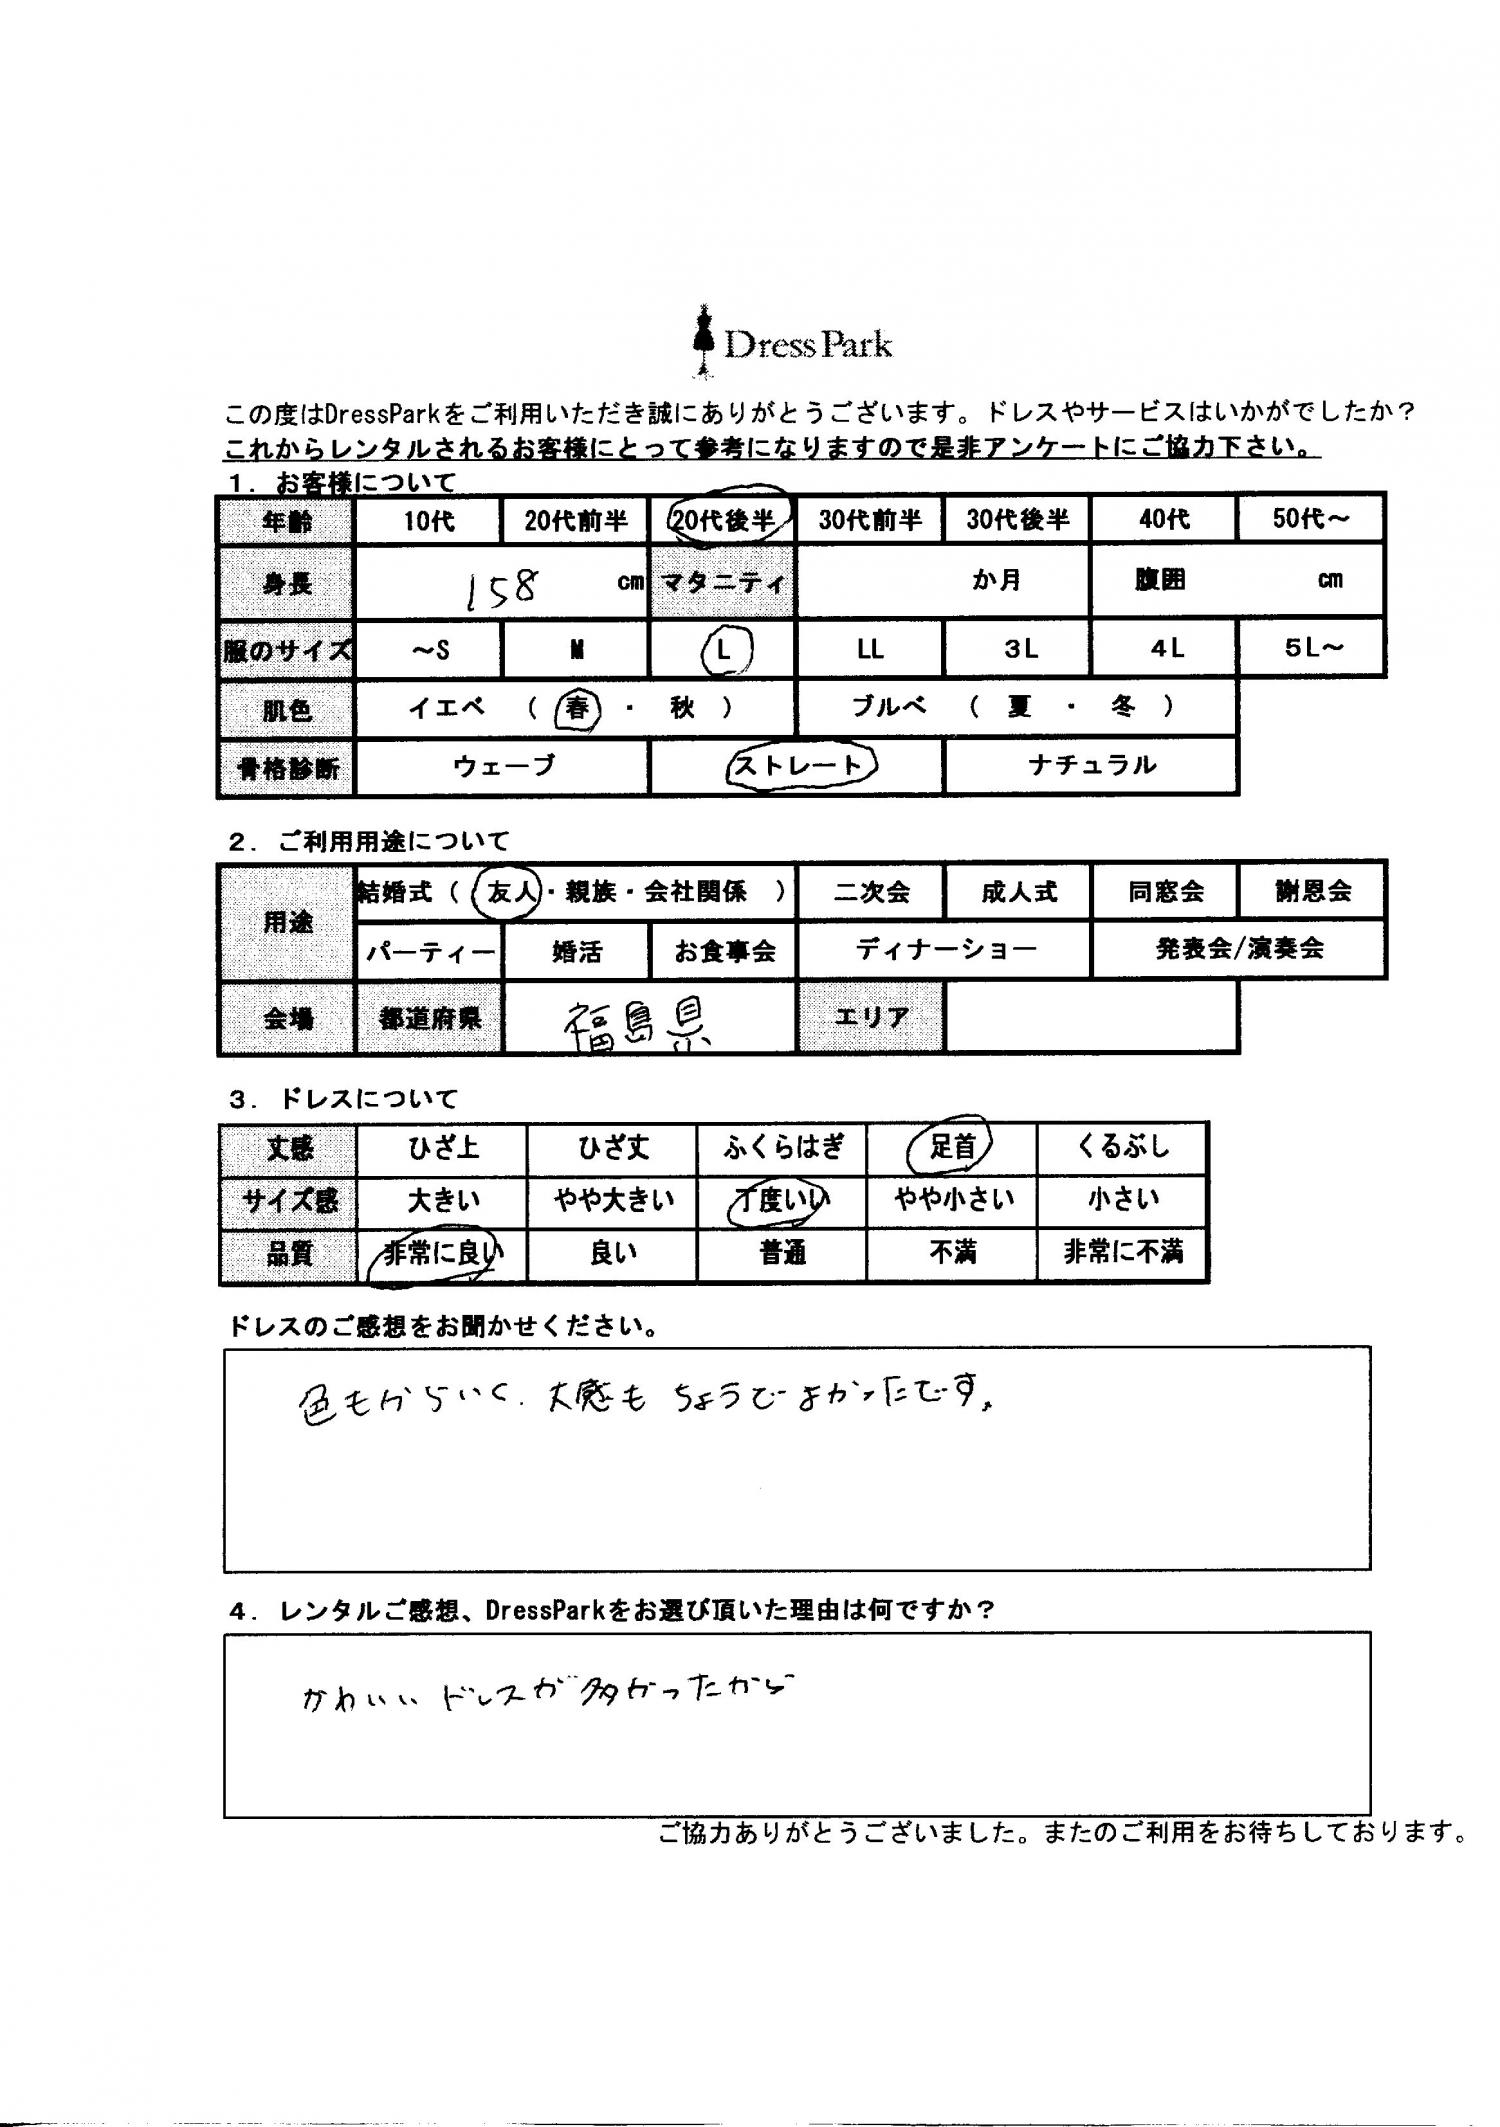 Dress Park
この度はDressParkをご利用いただき誠にありがとうございます。ドレスやサービスはいかがでしたか？
これからレンタルされるお客様にとって参考になりますので是非アンケートにご協力下さい。
1. お客様について
年齢 10代 20代前半 20代後半 30代前半 30代後半 40代 50代～
身長 158 cm マタニティ か月 腹囲 cm
服のサイズ ～S M L LL 3L 4L 5L～
肌色 イエベ （ 春 ・ 秋 ） ブルベ （ 夏 ・ 冬 ）
骨格診断 ウェーブ ストレート ナチュラル
2. ご利用用途について
用途 結婚式（ 友人・親族・会社関係 ） 二次会 成人式 同窓会 謝恩会
パーティー 婚活 お食事会 ディナーショー 発表会/演奏会
会場 都道府県 福島県 エリア
3. ドレスについて
丈感 ひざ上 ひざ丈 ふくらはぎ 足首 くるぶし
サイズ感 大きい やや大きい 丁度いい やや小さい 小さい
品質 非常に良い 良い 普通 不満 非常に不満
ドレスのご感想をお聞かせください。
色も 丈感も よかったです。
4. レンタルご感想、DressParkをお選び頂いた理由は何ですか？
かわいいドレスが多かったから
ご協力ありがとうございました。またのご利用をお待ちしております。